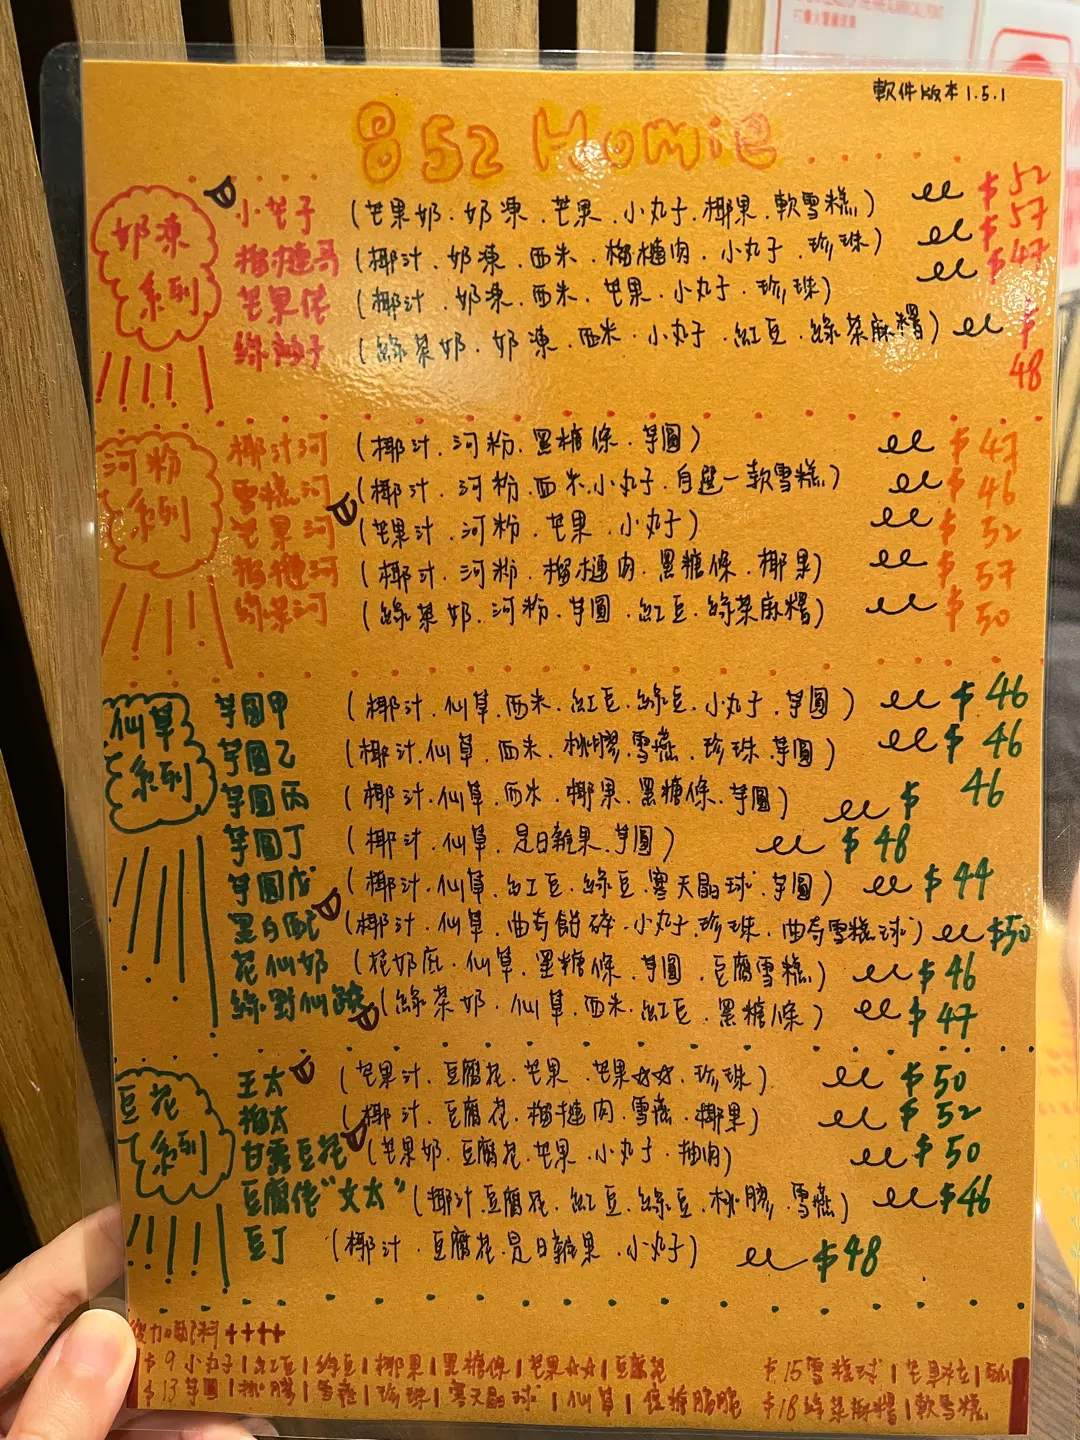 軟件版本1.5.1
852 Homie
奶凍系列
小芒子 (芒果奶.奶凍.芒果.小丸子.椰果.軟雪糕) $52
榴槤哥 (椰汁.奶凍.西米.榴槤肉.小丸子.珍珠) $57
芒果佬 (椰汁.奶凍.西米.芒果.小丸子.珍珠) $47
(綠茶奶.奶凍.西米.小丸子.紅豆.綠茶麻糬) $48
河粉系列
椰汁河 (椰汁.河粉.黑糖條.芋圓) $47
雪糕河 (椰汁.河粉.西米.小丸子.自選一軟雪糕) $46
芒果河 (芒果汁.河粉.芒果.小丸子) $52
榴槤河 (椰汁.河粉.榴槤肉.黑糖條.椰果) $57
綠茶河 (綠茶奶.河粉.芋圓.紅豆.綠茶麻糬) $50
仙草系列
芋圓甲 (椰汁.仙草.西米.紅豆.綠豆.小丸子.芋圓) $46
芋圓乙 (椰汁.仙草.西米.桃膠.雪燕.珍珠.芋圓) $46
芋圓丙 (椰汁.仙草.西米.椰果.黑糖條.芋圓) $46
芋圓丁 (椰汁.仙草.是日雜果.芋圓) $48
芋圓戊 (椰汁.仙草.紅豆.綠豆.寒天晶球.芋圓) $44
黑白配 (椰汁.仙草.曲奇餅碎.小丸子.珍珠.曲奇雪糕球) $50
花仙奶 (花奶底.仙草.黑糖條.芋圓.豆腐雪糕) $46
綠野仙踪 (綠茶奶.仙草.西米.紅豆.黑糖條) $47
豆花系列
王太 (芒果汁.豆腐花.芒果.芒果☆☆.珍珠) $50
榴太 (椰汁.豆腐花.榴槤肉.雪燕.椰果) $52
甘露豆花 (芒果奶.豆腐花.芒果.小丸子.柚肉) $50
豆腐佬"文太" (椰汁.豆腐花.紅豆.綠豆.桃膠.雪燕) $46
豆丁 (椰汁.豆腐花.是日雜果.小丸子) $48
加配料++++
$9 小丸子|紅豆|綠豆|椰果|黑糖條|芒果☆☆|豆腐花 $15 雪糕球|芒果粒
$13 芋圓|桃膠|雪燕|珍珠|寒天晶球|仙草 $18 綠茶麻糬|軟雪糕